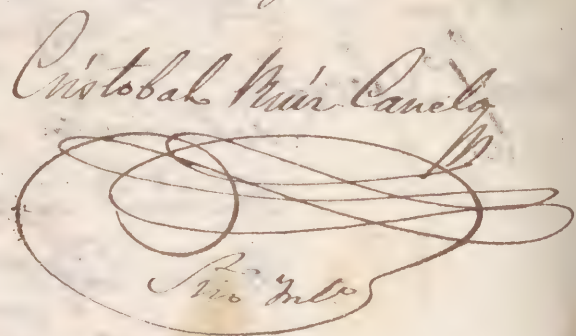 Cristobal Ruiz Canela
Srio Into